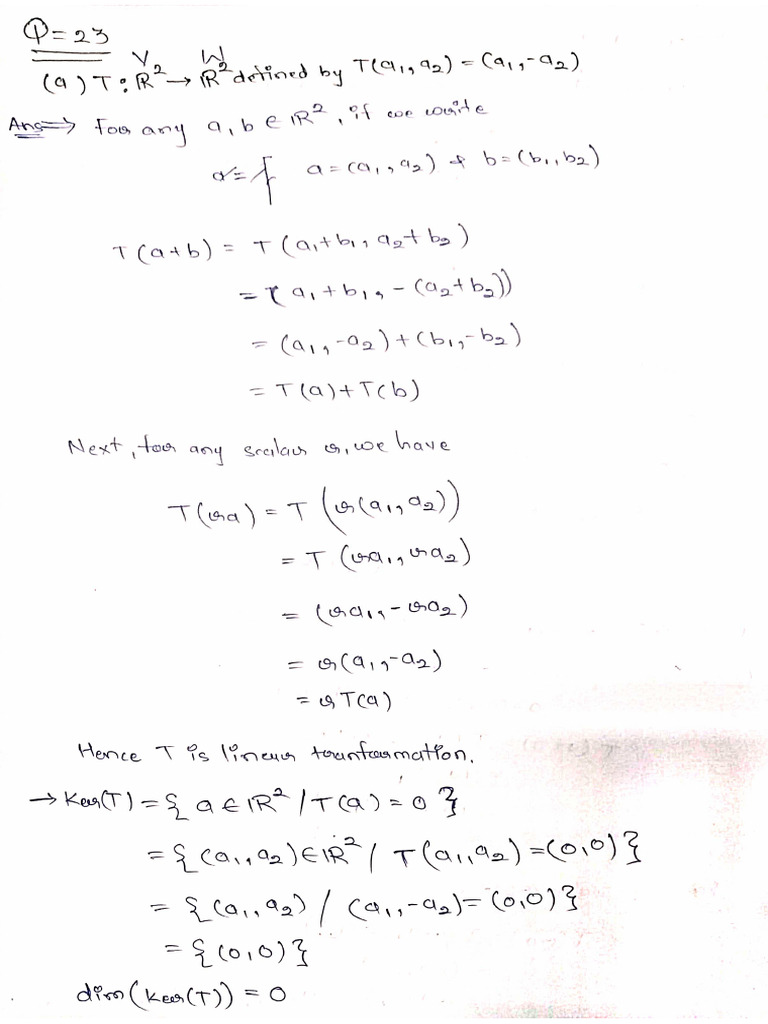 Q=23
V W
(a) T : ℝ² → ℝ² defined by T(a₁, a₂) = (a₁, -a₂)
Ans⇒ For any a, b ∈ ℝ², if we write
a = (a₁, a₂) & b = (b₁, b₂)
T(a+b) = T(a₁+b₁, a₂+b₂)
= (a₁+b₁, -(a₂+b₂))
= (a₁, -a₂) + (b₁, -b₂)
= T(a) + T(b)
Next, for any scalar r, we have
T(ra) = T(r(a₁, a₂))
= T(ra₁, ra₂)
= (ra₁, -ra₂)
= r(a₁, -a₂)
= r T(a)
Hence T is linear tranformation.
→ Ker(T) = { a ∈ ℝ² / T(a) = 0 }
= { (a₁, a₂) ∈ ℝ² / T(a₁, a₂) = (0,0) }
= { (a₁, a₂) / (a₁, -a₂) = (0,0) }
= { (0,0) }
dim(Ker(T)) = 0